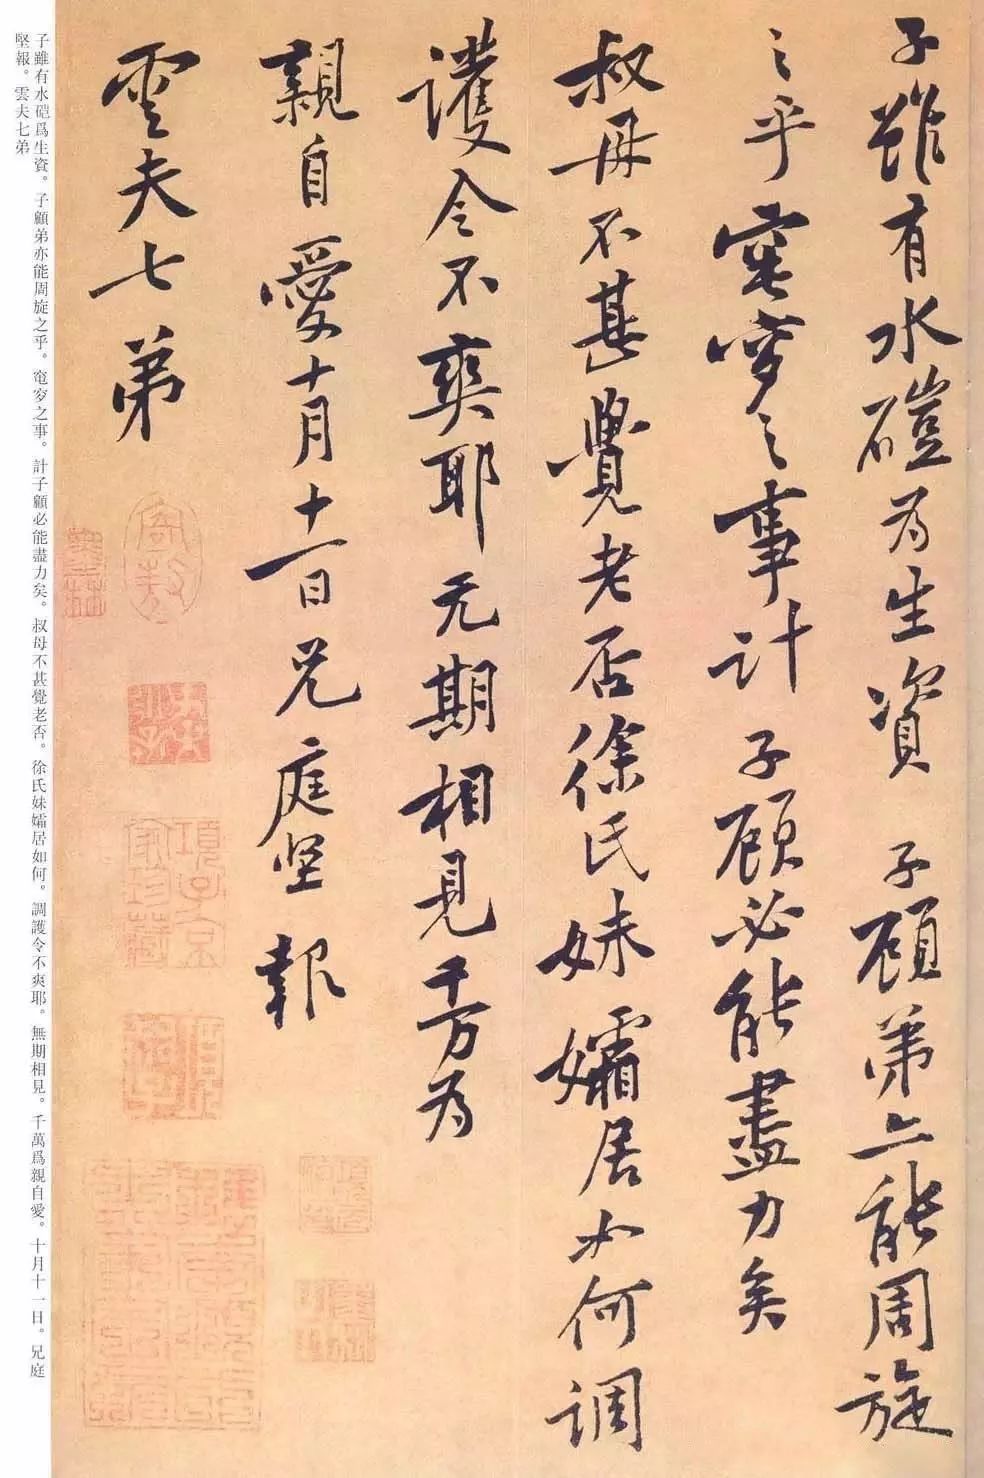 子雖有水磑为生資子顾弟亦能周旋
之乎窀穸之事計子顾必能盡力矣
叔母不甚覺老否徐氏妹孀居如何调
護令不爽耶无期相見千万为
親自愛十月十一日兄庭坚報
雲夫七弟
項子京
家珍藏
子雖有水磑爲生資。子顧弟亦能周旋之乎。窀穸之事。計子顧必能盡力矣。叔母不甚覺老否。徐氏妹孀居如何。調護令不爽耶。無期相見。千萬爲親自愛。十月十一日。兄庭
堅報。雲夫七弟